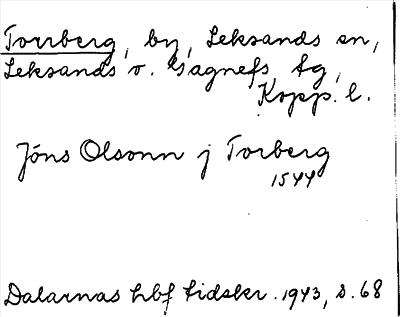 Torrberg, by, Leksands sn,
Leksands o. Gagnefs tg,
Kopp. l.
Jöns Olsonn j Torberg
1544
Dalarnas hbf tidskr. 1943, s. 68